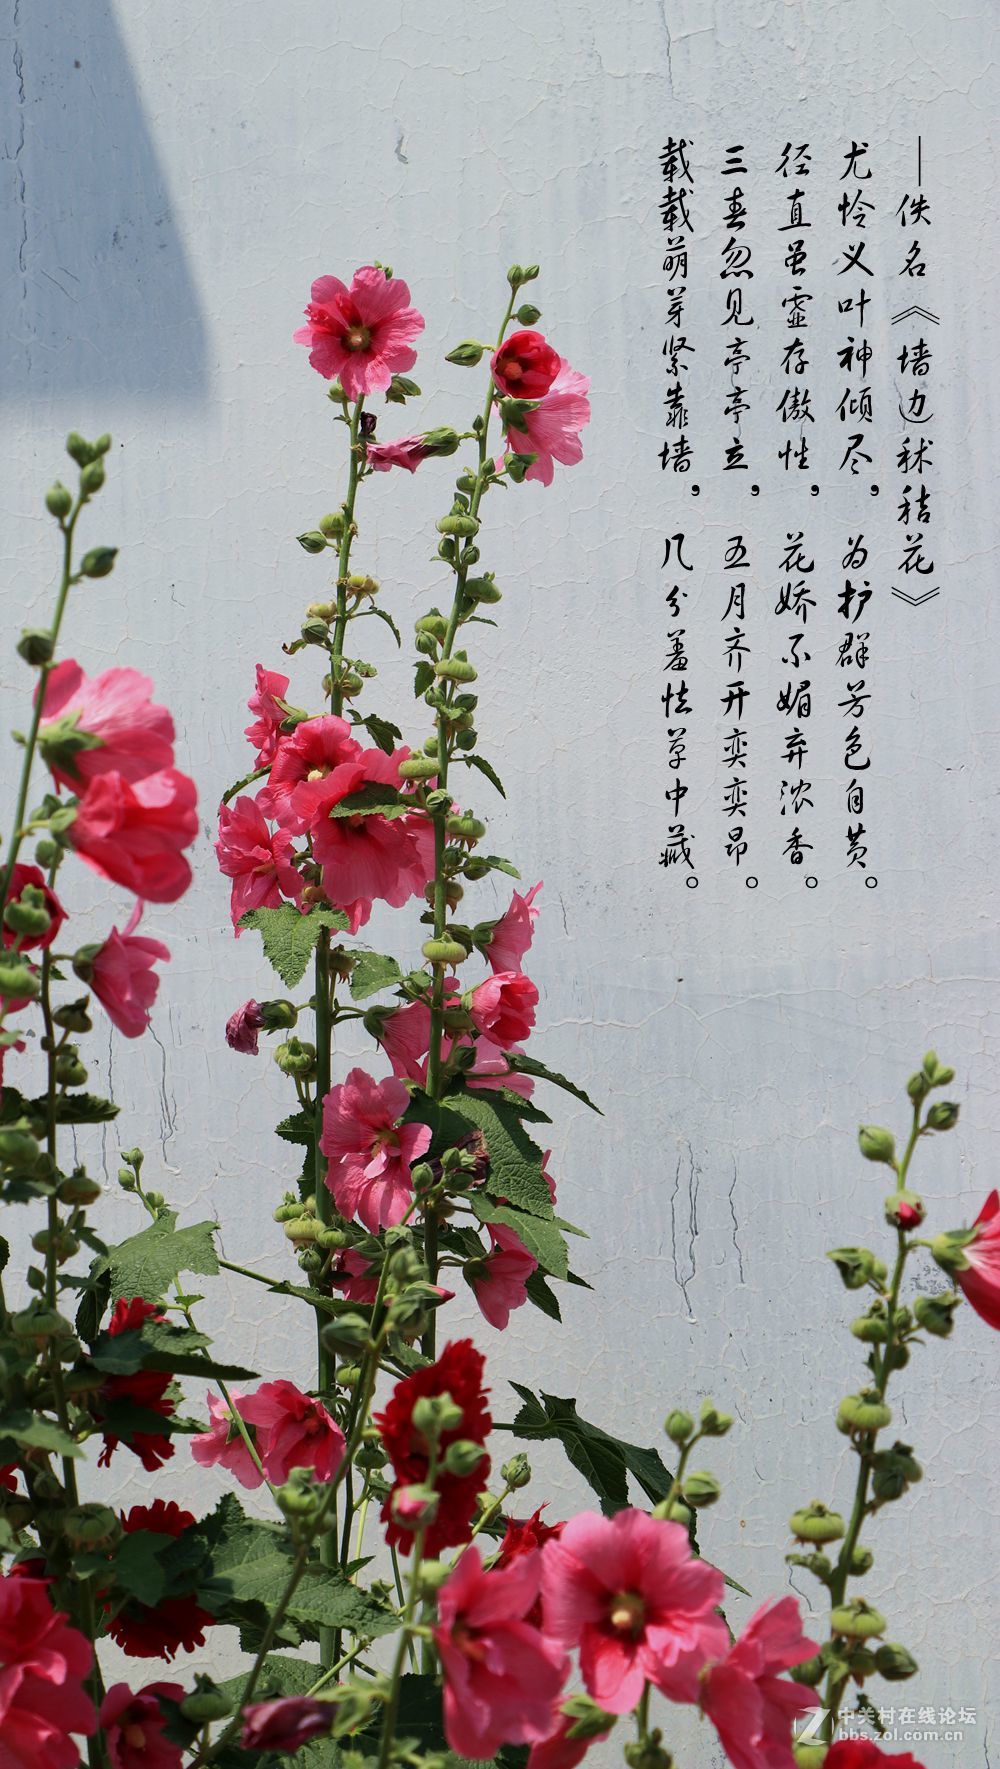 载载萌芽紧靠墙，几分羞怯草中藏。
三春忽见亭亭立，五月齐开奕奕昂。
径直虽虚存傲性，花娇不媚弃浓香。
尤怜义叶神倾尽，为护群芳色自黄。
—佚名《墙边秫秸花》
中关村在线论坛
bbs.zol.com.cn